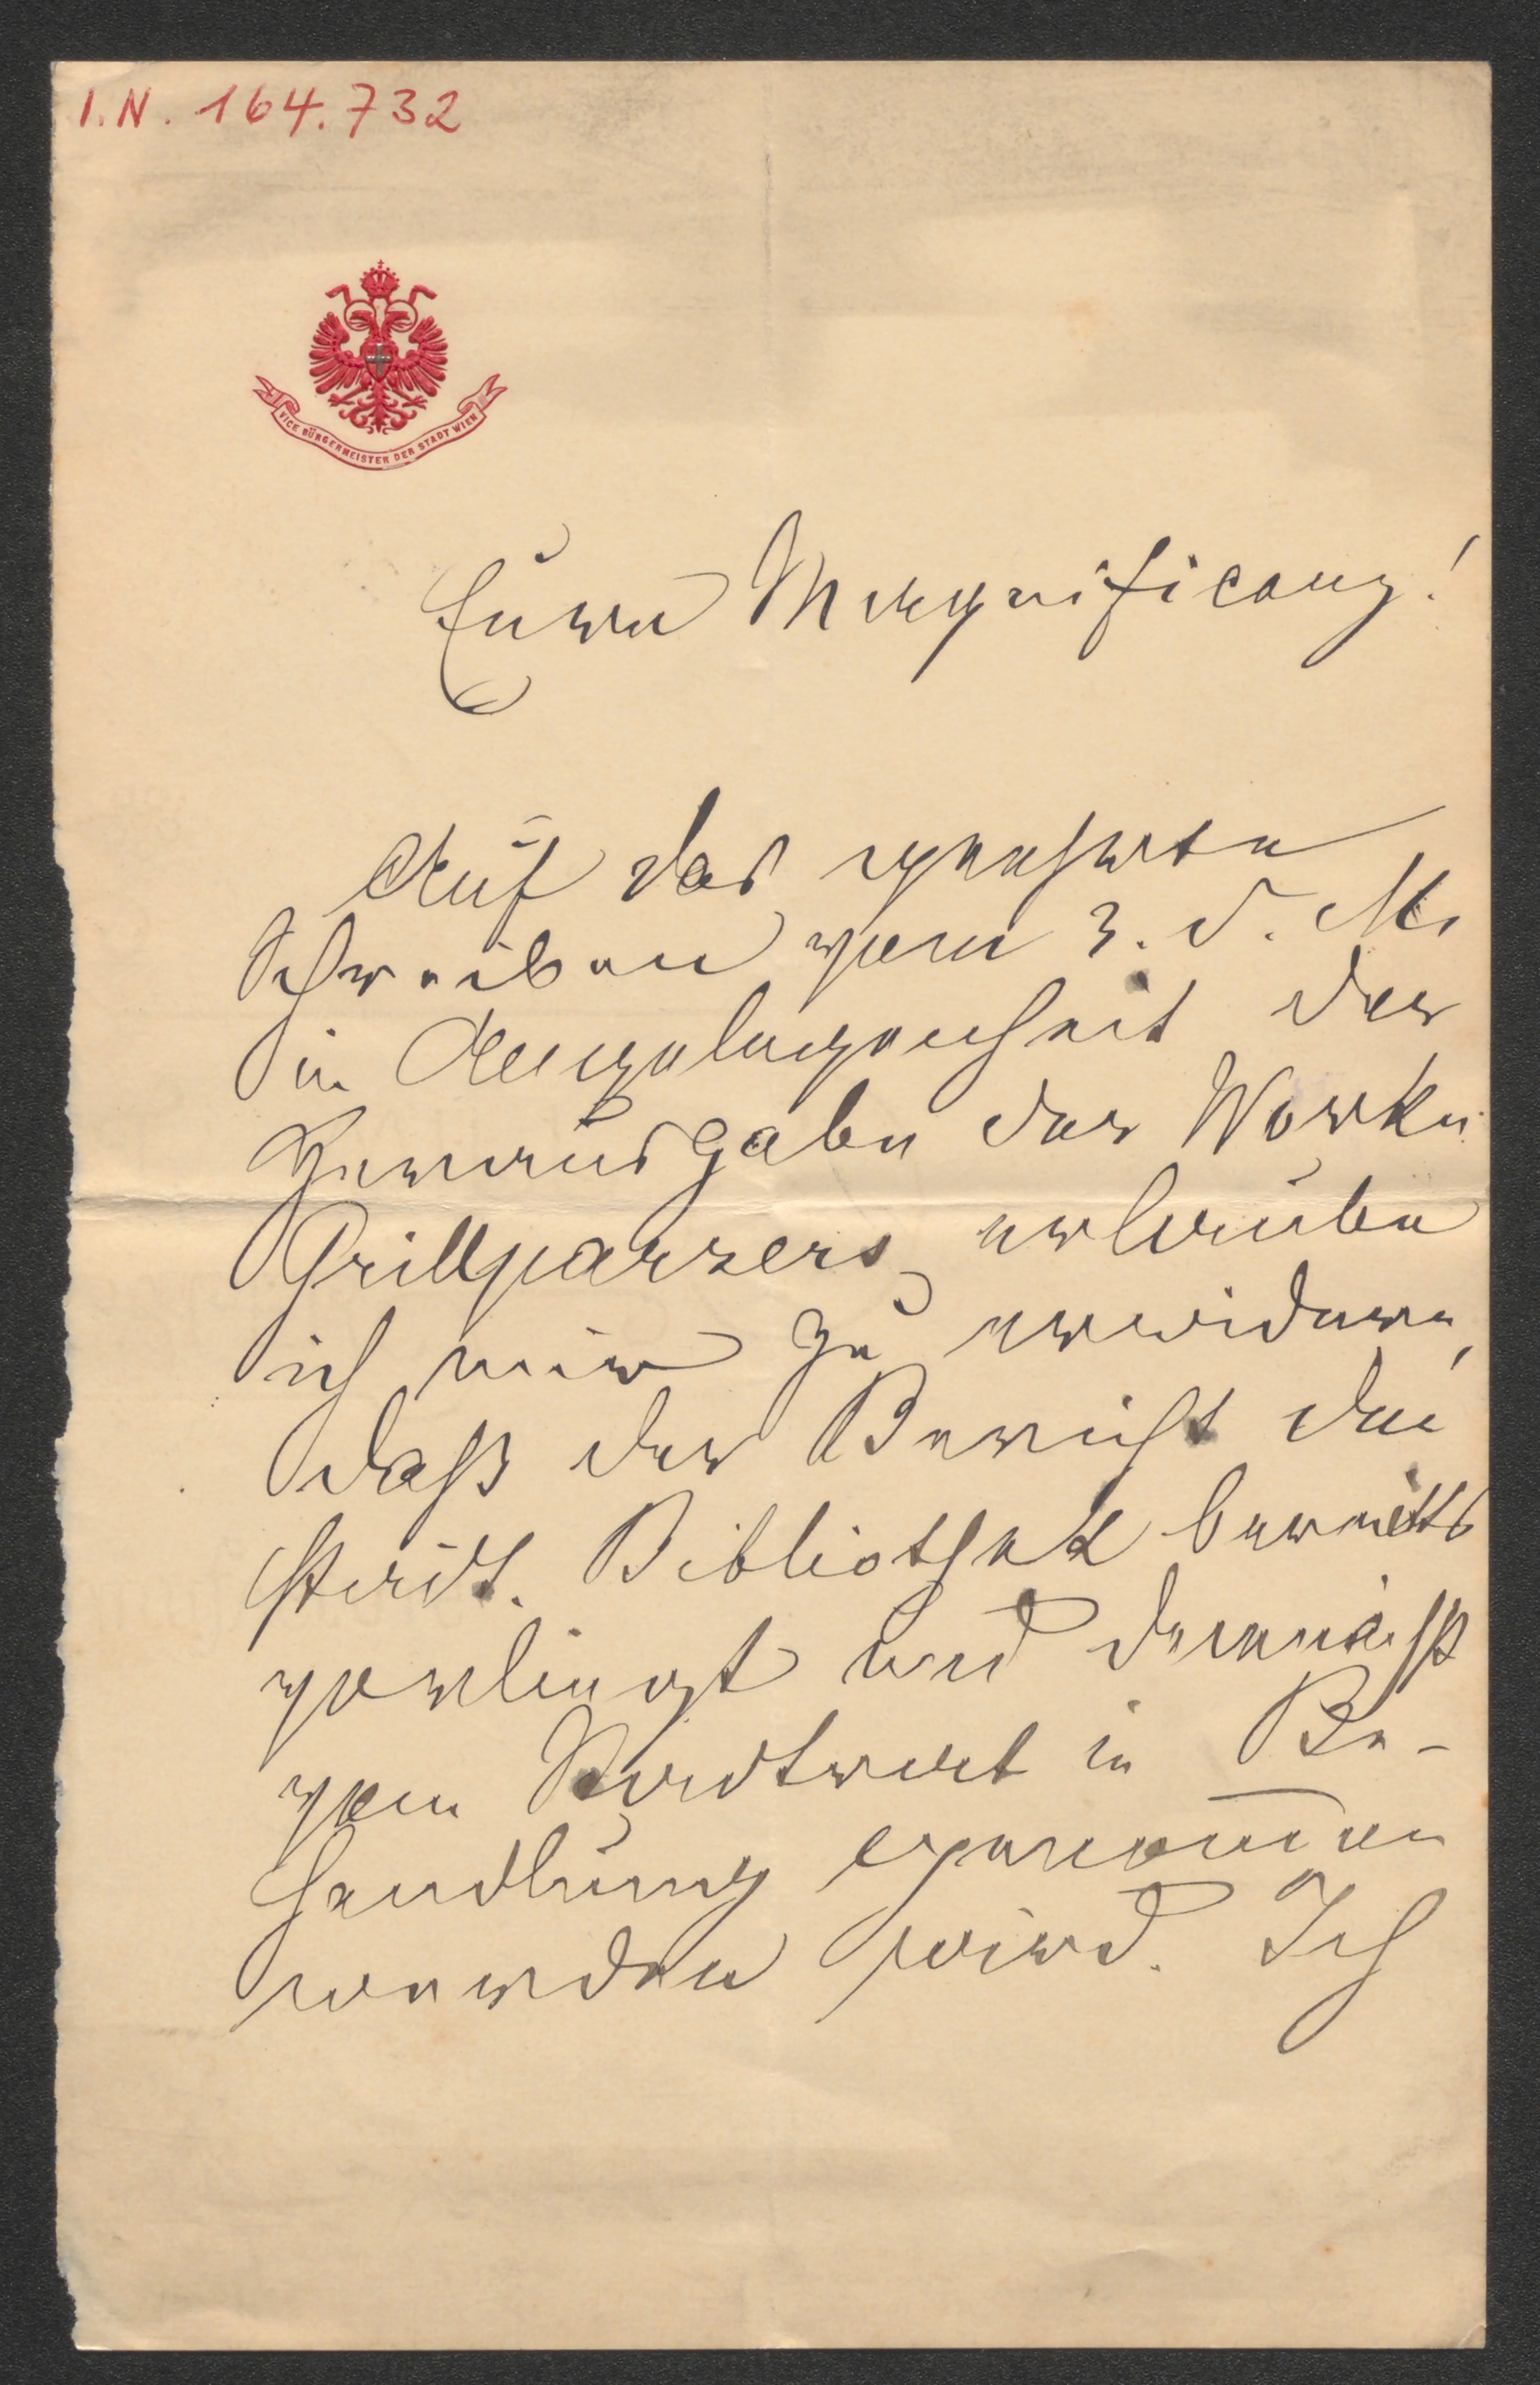 I.N. 164.732
VICE BÜRGERMEISTER DER STADT WIEN
Euere Magnificenz!
Auf das geehrte
Schreiben vom 3. d. M.
in Angelegenheit der
Herausgabe der Werke
Grillparzers erlaube
ich mir zu erwidern,
daß der Bericht der
städt. Bibliothek bereits
vorliegt und demnächst
vom Stadtrat in Be-
handlung genomen
werden wird. Ich